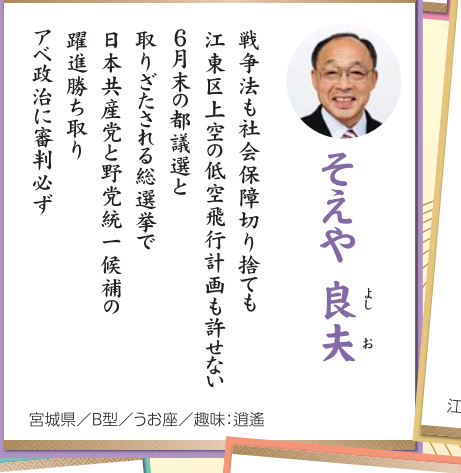 そえや 良夫
よし お
戦争法も社会保障切り捨ても
江東区上空の低空飛行計画も許せない
6月末の都議選と
取りざたされる総選挙で
日本共産党と野党統一候補の
躍進勝ち取り
アベ政治に審判必ず
宮城県／B型／うお座／趣味：逍遙
江